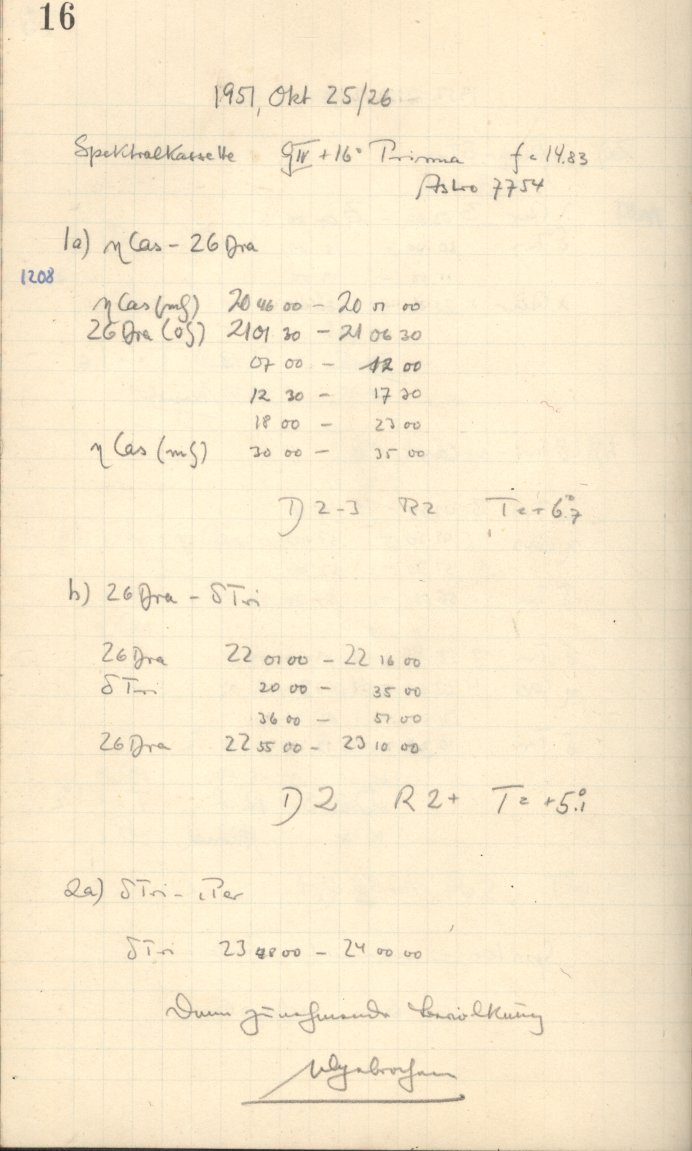 16
1951, Okt 25/26
Spektralkassette GIV + 16° Prisma f = 14.83
Astro 7754
1a) η Cas - 26 Dra
1208
η Cas 20 46 00 - 20 51 00
26 Dra 21 01 30 - 21 06 30
07 00 - 12 00
12 30 - 17 30
18 00 - 23 00
η Cas 30 00 - 35 00
D 2-3 R 2 T = + 6.°7
b) 26 Dra - δ Tri
26 Dra 22 01 00 - 22 16 00
δ Tri 20 00 - 35 00
36 00 - 51 00
26 Dra 22 55 00 - 23 10 00
D 2 R 2+ T = +5.°1
2a) δ Tri - ι Per
δ Tri 23 48 00 - 24 00 00
Dann zunehmende Bewölkung
Abgebrochen